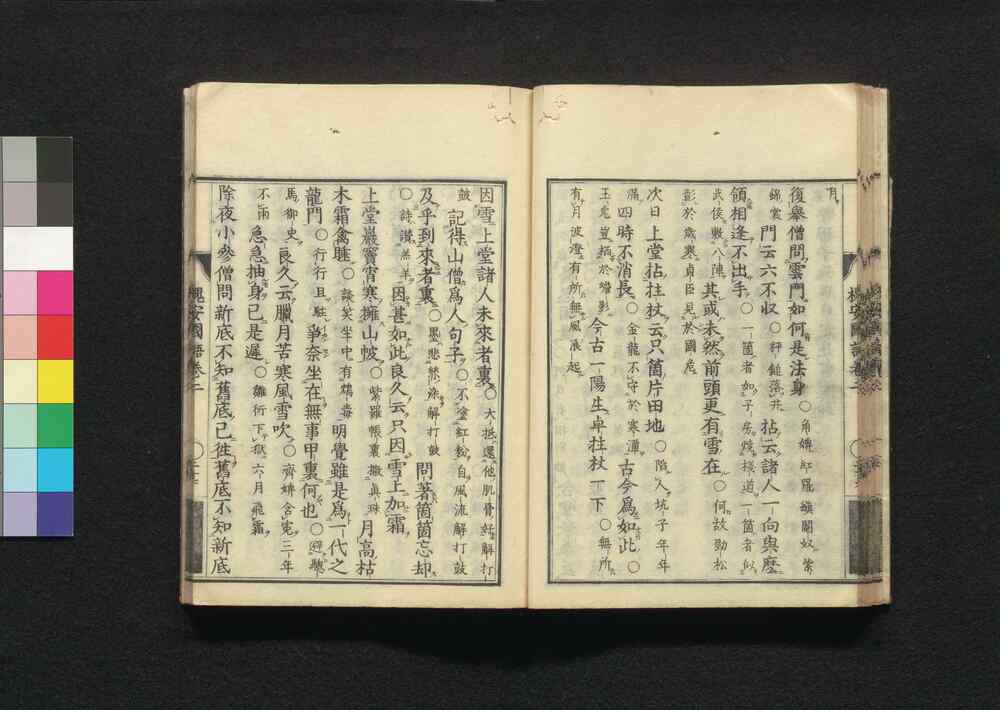 月
復擧僧問雲門如何是法身○角妓紅羅鎖闘奴紫
錦裳門云六不收○秤鎚落井拈云諸人一向與麽
領相逢不出手○一箇者如子房燒棧道一箇者似
武侯敷八陣其或未然前頭更有雪在○何故勁松
彭於歲寒貞臣見於國危
次日上堂拈拄杖云只箇片田地○陷人坑子年年
滿四時不消長○金龍不守於寒潭古今爲如此○
玉兔豈栖於蟾影今古一陽生卓拄杖一下○無所
有月波澄有所無風浪起
因雪上堂諸人未來者裏○大抵還他肌骨好解打
鼓記得山僧爲人句子○不塗紅粉自風流解打鼓
及乎到來者裏○墨悲絲染解打鼓問著箇箇忘却
○詩讚羔羊因甚如此良久云只因雪上加霜
上堂巖竇宵寒擁山帔○紫羅帳裏撒眞珠月高枯
木霜禽睡○談笑坐中有鴆毒明覺雖是爲一代之
龍門○行行且駐爭奈坐在無事甲裏何也○避驄
馬御史良久云臘月苦寒風雪吹○齊妍含寃三年
不雨急急抽身已是遲○鄒衍下獄六月飛霜
除夜小參僧問新底不知舊底已往舊底不知新底
槐安國語卷二